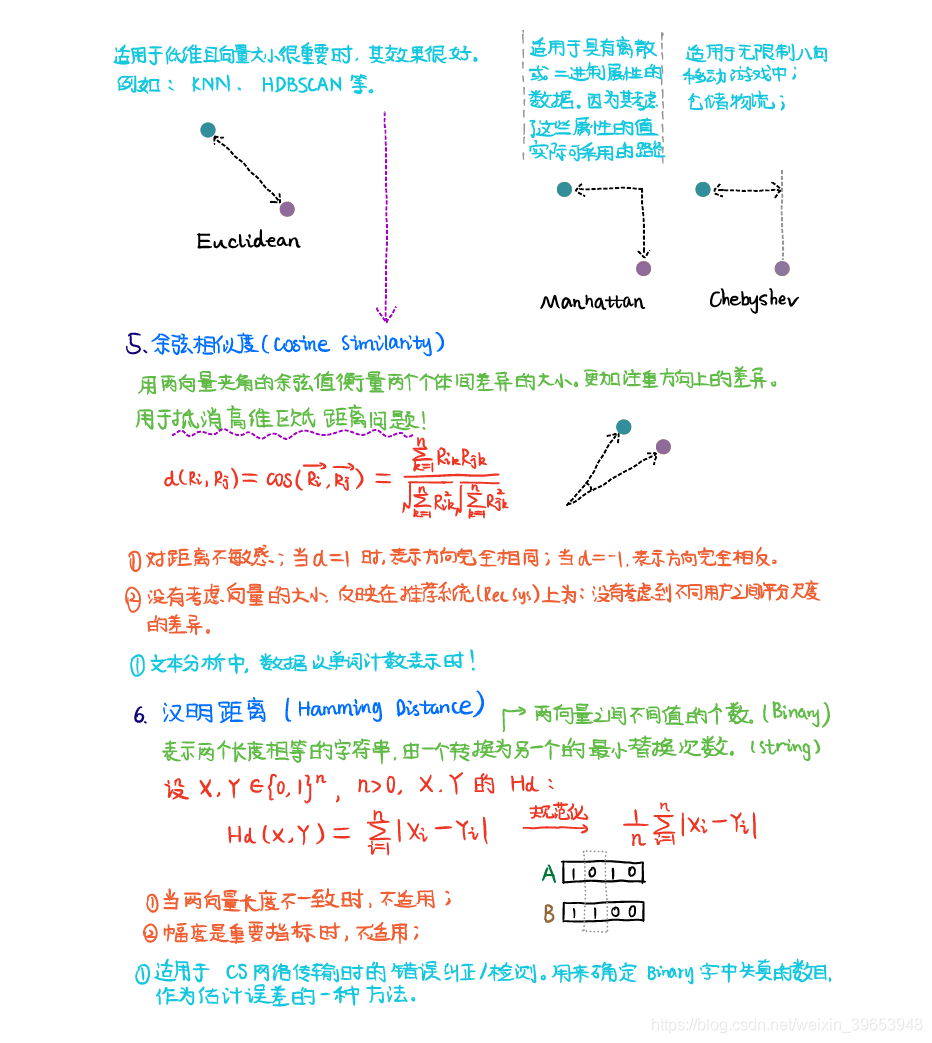 适用于低维且向量大小很重要时，其效果很好。
例如： KNN、 HDBSCAN 等。
Euclidean
适用于具有离散
或二进制属性的
数据。因为其考虑
了这些属性的值
实际可采用的路径
Manhattan
适用于无限制八向
移动游戏中；
仓储物流；
Chebyshev
5、余弦相似度(Cosine Similarity)
用两向量夹角的余弦值衡量两个个体间差异的大小。更加注重方向上的差异。
用于抵消高维欧氏距离问题！
d(Ri, Rj) = cos(→Ri, →Rj) = ∑_{k=1}^{n} RikRjk / √(∑_{k=1}^{n} Rik²) √(∑_{k=1}^{n} Rjk²)
① 对距离不敏感；当d=1 时，表示方向完全相同；当d=-1，表示方向完全相反。
② 没有考虑向量的大小，反映在推荐系统(Rec Sys)上为：没有考虑到不同用户之间评分尺度
的差异。
① 文本分析中，数据以单词计数表示时！
6. 汉明距离 (Hamming Distance)
两向量之间不同值的个数。(Binary)
表示两个长度相等的字符串，由一个转换为另一个的最小替换次数。(string)
设 X, Y ∈ {0, 1}ⁿ, n>0, X, Y 的 Hd：
Hd(X, Y) = ∑_{i=1}^{n} |Xi − Yi| 规范化 1/n ∑_{i=1}^{n} |Xi − Yi|
A 1 0 1 0
B 1 1 0 0
① 当两向量长度不一致时，不适用；
② 幅度是重要指标时，不适用；
① 适用于 CS 网络传输时的错误纠正/检测。用来确定 Binary 字中失真的数目，
作为估计误差的一种方法。
https://blog.csdn.net/weixin_39653948